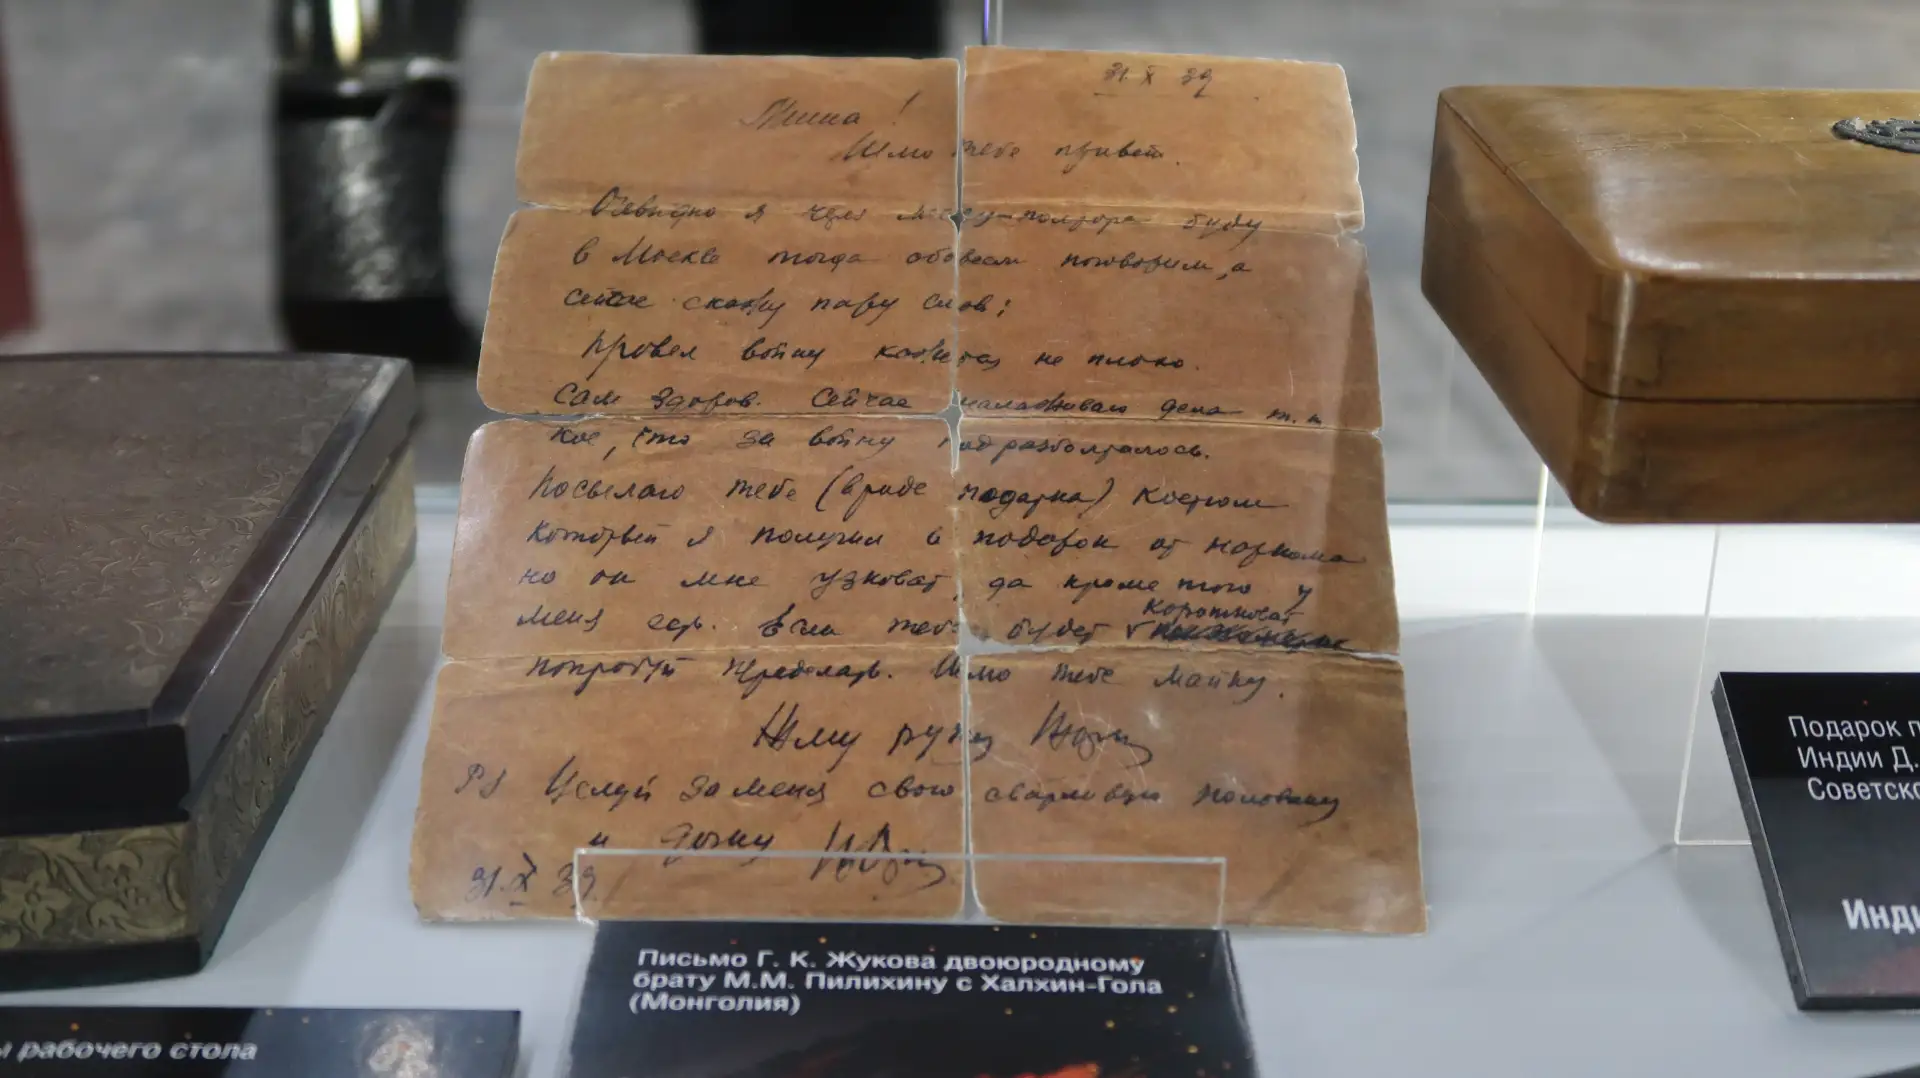 31. X 39
Миша!
Шлю тебе привет.
Очевидно я через месяц-полтора буду
в Москве тогда обо всем поговорим, а
сейчас скажу пару слов:
Провел войну кажется не плохо.
Сам здоров. Сейчас налаживаю дела т.к
кое, что за войну подразболталось.
Посылаю тебе (в виде подарка) костюм
который я получил в подарок от наркома
но он мне узковат, да кроме того у
меня есть. Если тебе будет коротковат
попробуй переделать. Шлю тебе майку.
Жму руку
PS Целуй за меня свою сварливую половину
и дочку
31. X 39.
Письмо Г. К. Жукова двоюродному
брату М.М. Пилихину с Халхин-Гола
(Монголия)
ы рабочего стола
Подарок п
Индии Д.
Советско
Инди